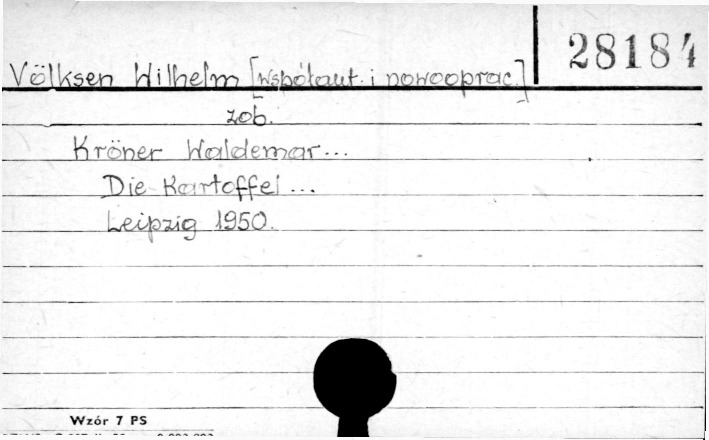 28184
Völksen Wilhelm [współaut. i nowooprac.]
zob.
Kröner Waldemar...
Die Kartoffel...
Leipzig 1950.
Wzór 7 PS